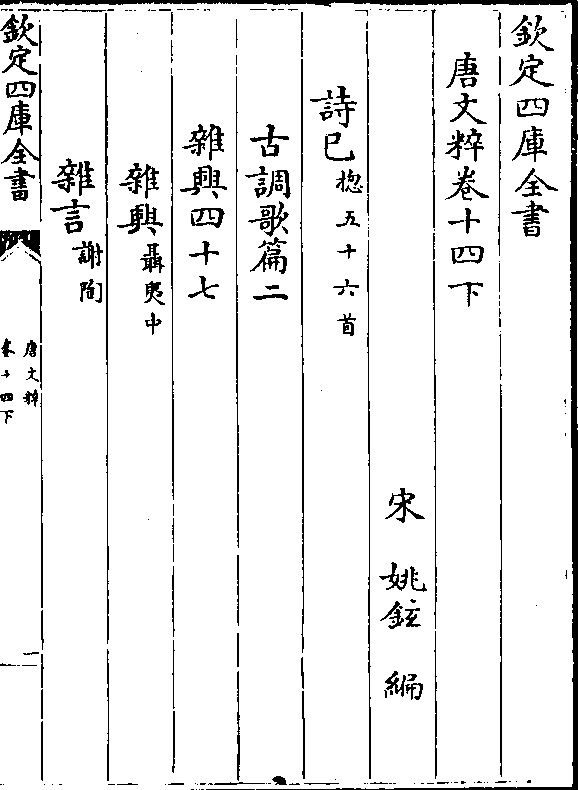 欽定四庫全書
唐文粹卷十四下
宋 姚鉉 編
詩已揔五十六首
古調歌篇二
雜興四十七
雜興聶夷中
雜言謝陶
欽定四庫全書
唐文粹
卷十四下
一